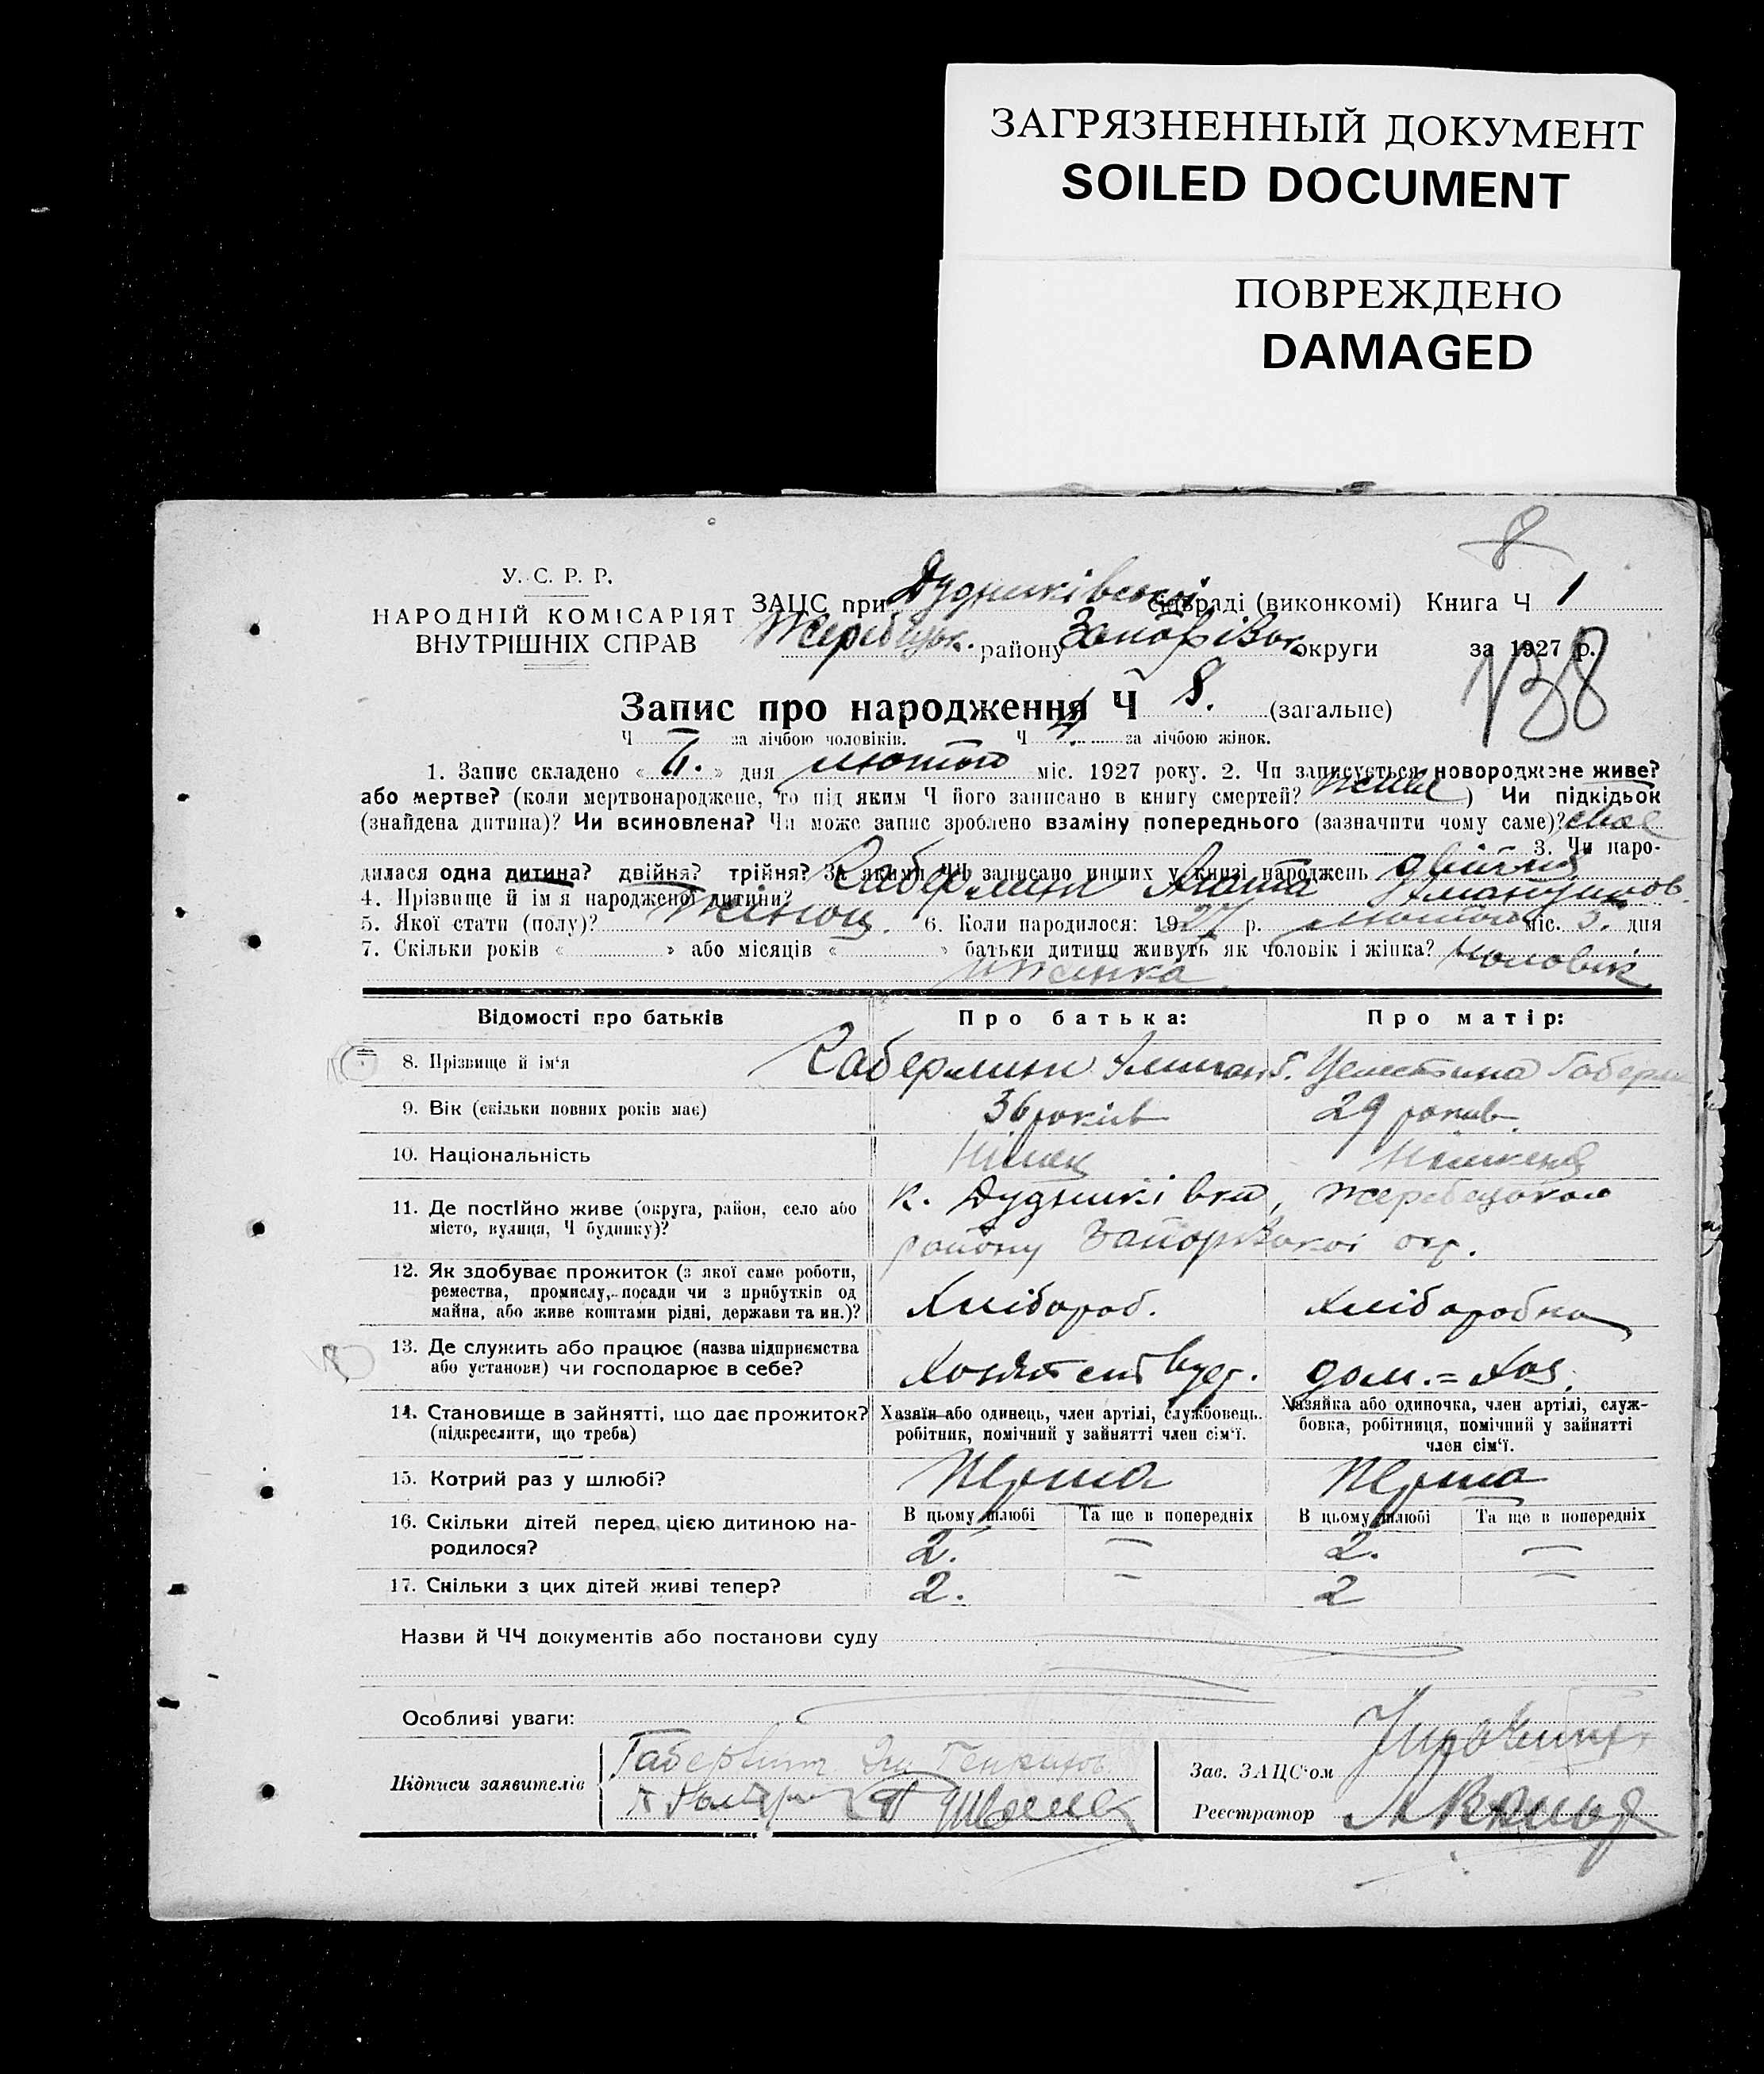 ЗАГРЯЗНЕННЫЙ ДОКУМЕНТ
SOILED DOCUMENT
ПОВРЕЖДЕНО
DAMAGED
8
У. С. Р. Р.
НАРОДНІЙ КОМІСАРІЯТ
ВНУТРІШНІХ СПРАВ
ЗАЦС при Дудниківській сільраді (виконкомі) Книга Ч 1
Жеребецьк. району Запорізьк округи за 1927 р.
138
Запис про народження Ч 8. (загальне)
Ч за лічбою чоловіків. Ч 4. за лічбою жінок.
1. Запис складено « » дня лютого міс. 1927 року. 2. Чи записується новороджене живе?
або мертве? (коли мертвонароджене, то під яким Ч його записано в книгу смертей? живе) Чи підкідьок
(знайдена дитина)? Чи всиновлена? Чи може запис зроблено взаміну попереднього (зазначити чому саме)?
3. Чи наро-
дилася одна дитина? двійня? трійня? За якими ЧЧ записано инших у книзі народжень двійня
4. Прізвище й ім'я народженої дитини? Габерлинг Агата
5. Якої стати (полу)? Жіноц. 6. Коли народилося: 1927 р. лютого міс. 5. дня
7. Скільки років « » або місяців « » батьки дитини живуть як чоловік і жінка? чоловік
и жінка
Відомості про батьків
Про батька:
Про матір:
8. Прізвище й ім'я
Габерлинг
9. Вік (скільки повних років має)
36 років
29 років.
10. Національність
Німец
Німкеня
11. Де постійно живе (округа, район, село або
місто, вулиця, Ч будинку)?
к. Дудниківка, Жеребецького
району Запорізької окр.
12. Як здобуває прожиток (з якої саме роботи,
ремества, промислу, посади чи з прибутків од
майна, або живе коштами рідні, держави та ин.)?
Хлібороб.
Хліборобка
13. Де служить або працює (назва підприємства
або установи) чи господарює в себе?
дом. = хоз.
14. Становище в зайнятті, що дає прожиток?
(підкреслити, що треба)
Хазяїн або одинець, член артілі, службовець.
робітник, помічний у зайнятті член сім'ї.
Хазяйка або одиночка, член артілі, служ-
бовка, робітниця, помічний у зайнятті
член сім'ї.
15. Котрий раз у шлюбі?
Перша
Перша
16. Скільки дітей перед цією дитиною на-
родилося?
В цьому шлюбі
Та ще в попередніх
В цьому шлюбі
Та ще в попередніх
2. — 2. —
17. Скільки з цих дітей живі тепер?
2. — 2 —
Назви й ЧЧ документів або постанови суду
Особливі уваги:
Підписи заявителів
Зав. ЗАЦС'ом
Реєстратор